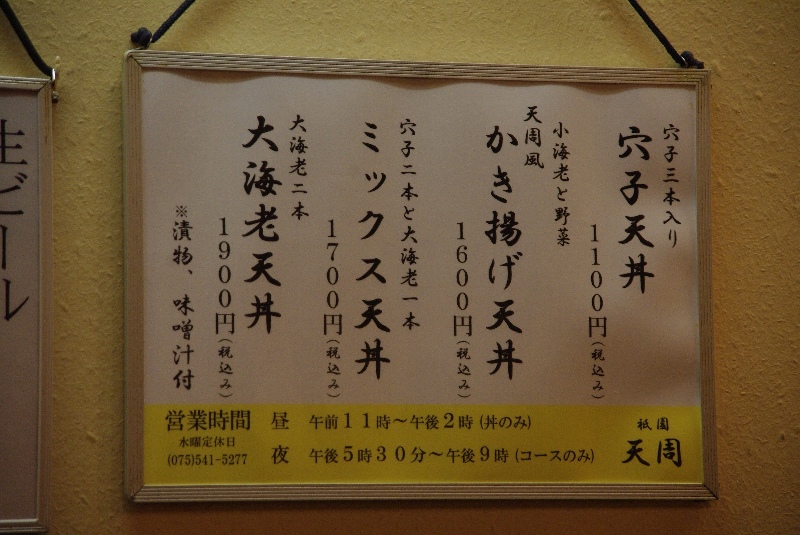 穴子三本入り
穴子天丼
1100円(税込み)
小海老と野菜
天周風
かき揚げ天丼
1600円(税込み)
穴子二本と大海老一本
ミックス天丼
1700円(税込み)
大海老二本
大海老天丼
1900円(税込み)
※漬物、味噌汁付
営業時間
水曜定休日
(075)541-5277
昼 午前11時〜午後2時(丼のみ)
夜 午後5時30分〜午後9時(コースのみ)
祇園
天周
生ビール